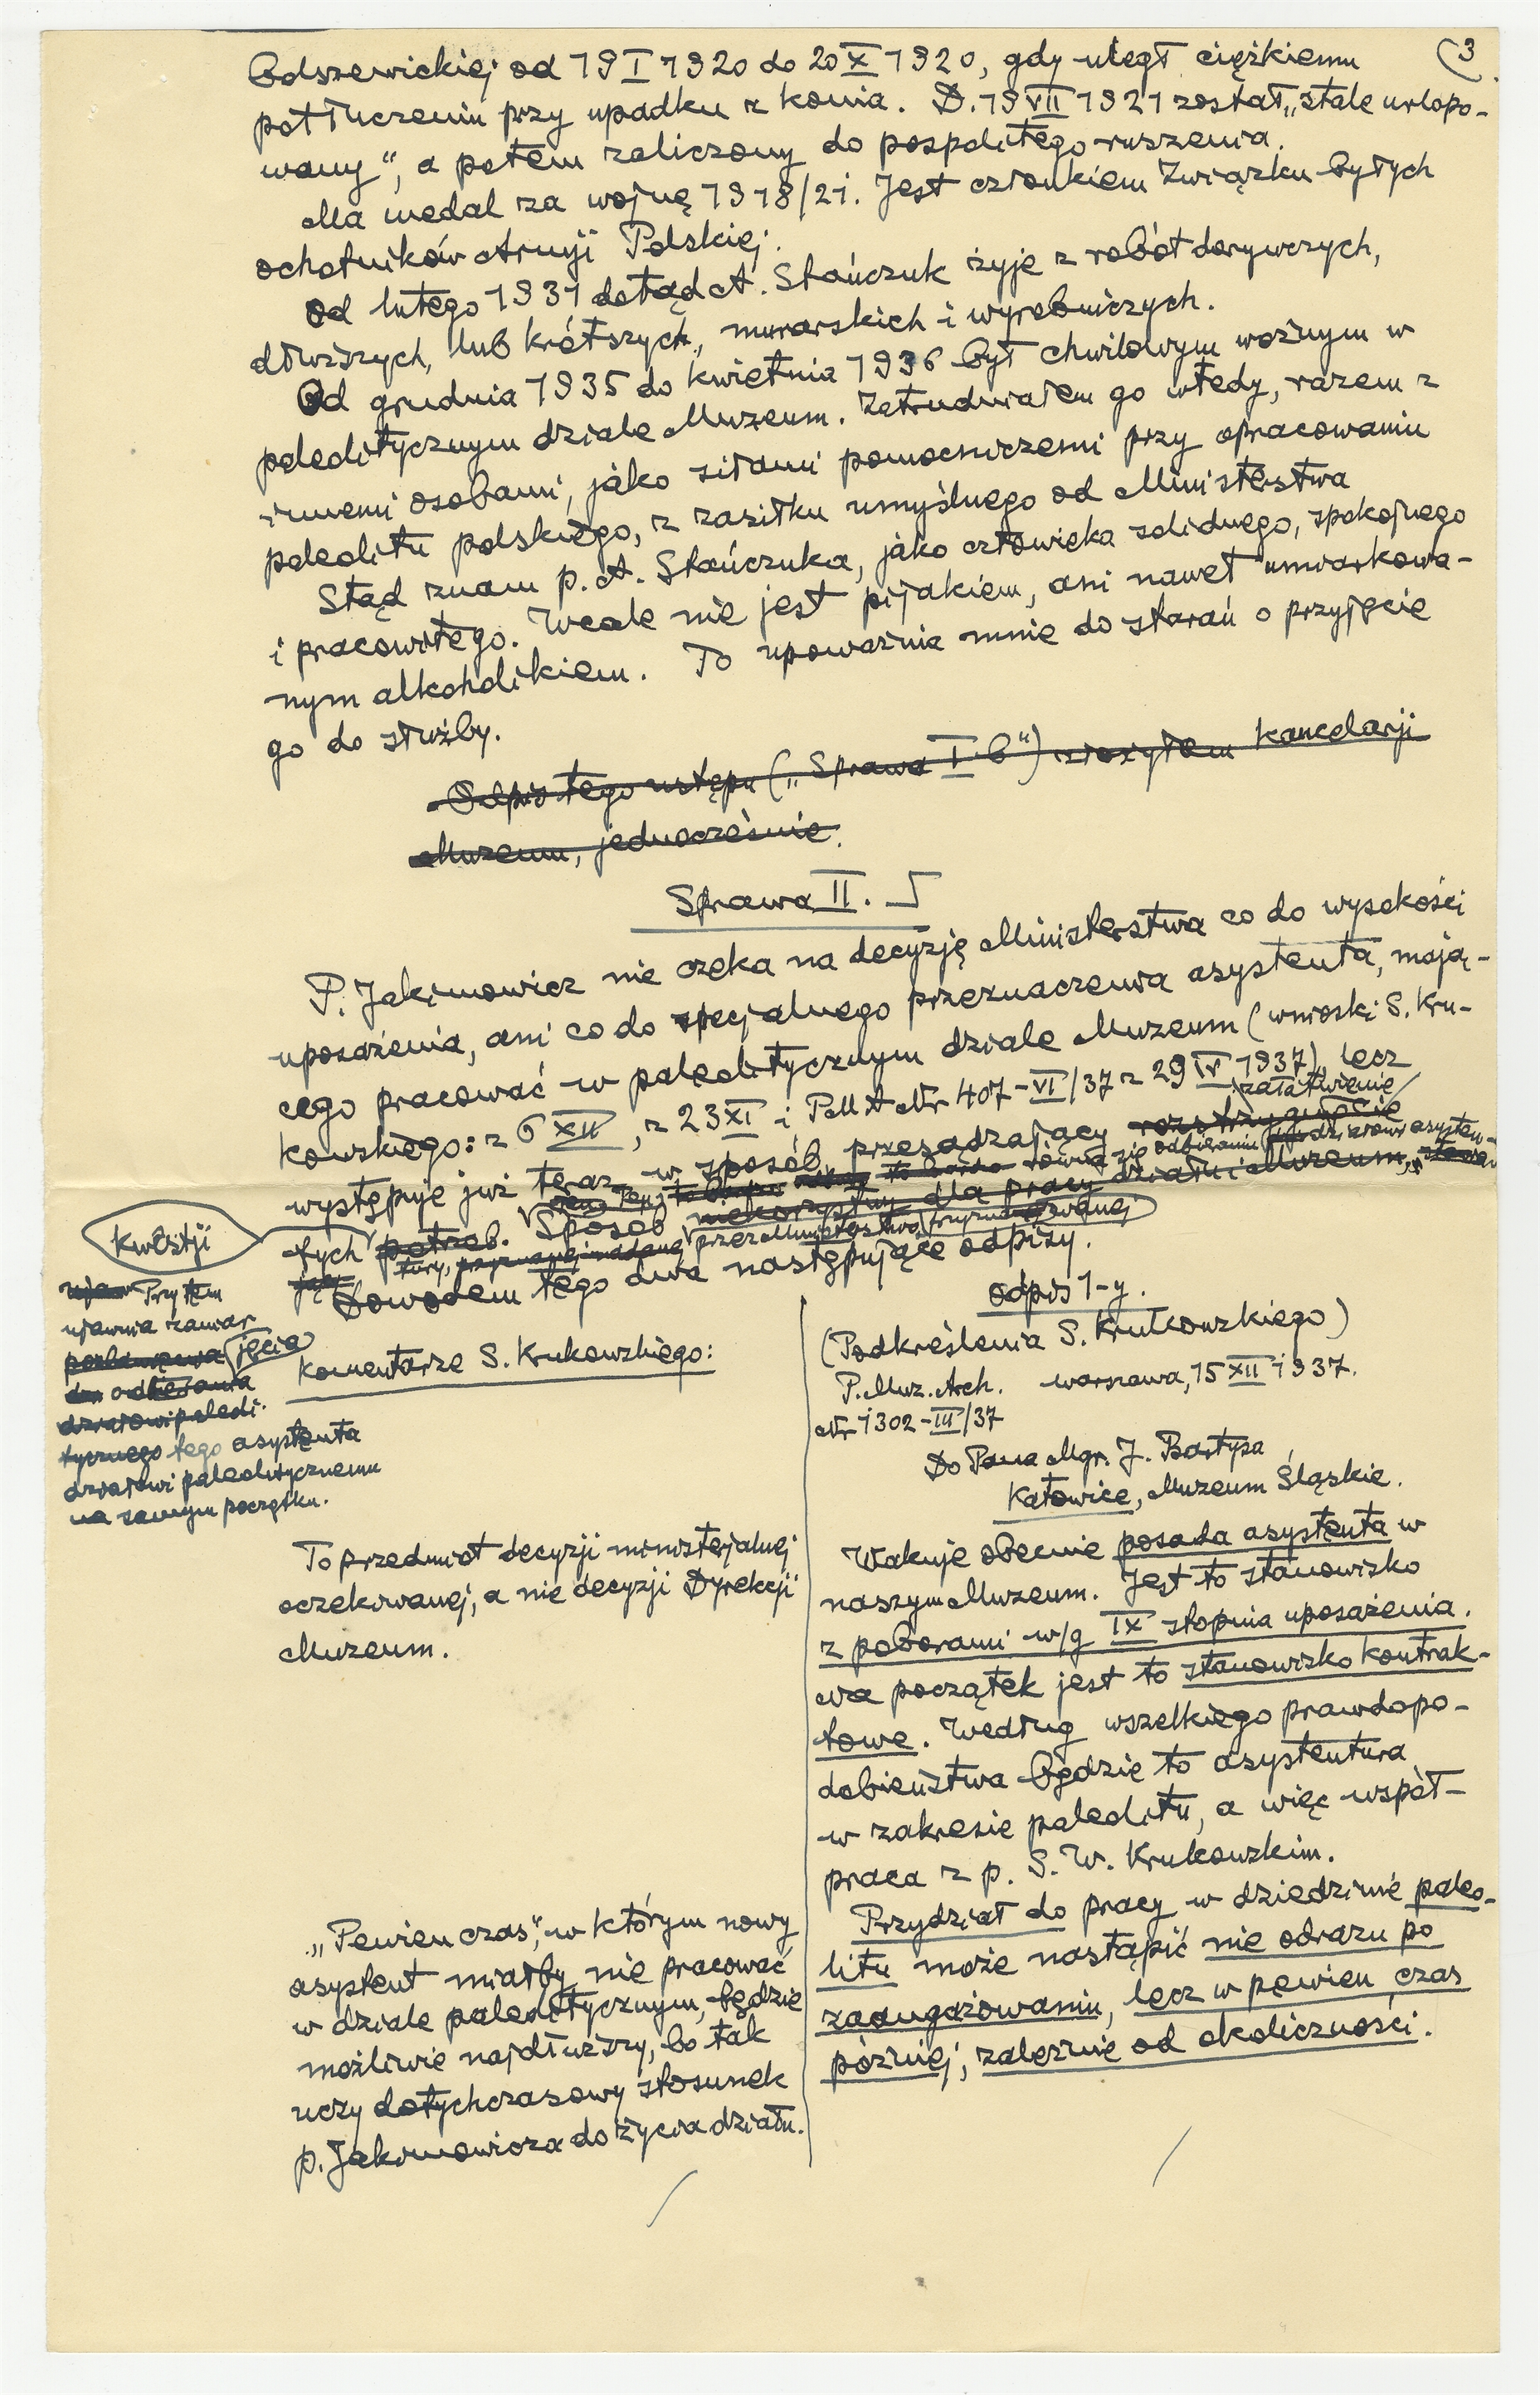 (3
Odszewickiej od 19 I 1920 do 20 X 1920, gdy uległ ciężkiemu
potłuczeniu przy upadku z konia. D. 19 VII 1921 został „stale urlopo-
wany“, a potem zaliczony do pospolitego ruszenia.
Ma medal za wojnę 1918/21. Jest członkiem Związku byłych
ochotników Armji Polskiej.
Od lutego 1931 dotąd A. Stańczuk żyje z robót dorywczych,
dłuższych, lub krótszych, murarskich i wyrobniczych.
Od grudnia 1935 do kwietnia 1936 był chwilowym woźnym w
paleolitycznym dziale Muzeum. Zatrudniałem go wtedy, razem z
innemi osobami, jako siłami pomocniczemi przy opracowaniu
paleolitu polskiego, z zasiłku umyślnego od Ministerstwa
Stąd znam p. A. Stańczuka, jako człowieka solidnego, spokojnego
i pracowitego. Wcale nie jest pijakiem, ani nawet umiarkowa-
nym alkoholikiem. To upoważnia mnie do starań o przyjęcie
go do służby.
Odpis tego ustępu („Sprawa I b“) złożyłem kancelarji
Muzeum, jednocześnie.
Sprawa II.
P. Jakimowicz nie czeka na decyzję Ministerstwa co do wysokości
uposażenia, ani co do specjalnego przeznaczenia asystenta, mają-
cego pracować w paleolitycznym dziale Muzeum (wnioski S. Kru-
kowskiego: z 6 XII, z 23 XI i PMA Nr 407-VI/37 z 29 IV 1937), lecz
załatwienie
występuje już teraz w sposób przesądzający rozstrzygnięcie
Ten równa się odbieraniu działowi asysten-
tych potrzeb. Sposób niekorzystny dla pracy działu i Muzeum,
tury, przez Ministerstwo
Dowodem tego dwa następujące odpisy.
kwestji
Przytem
ujawnia zamiar
jęcia
odbierania
działowi paleoli-
tycznego tego asystenta
działowi paleolitycznemu
na samym początku.
Komentarze S. Krukowskiego:
To przedmiot decyzji ministerjalnej
oczekiwanej, a nie decyzji Dyrekcji
Muzeum.
„Pewien czas“, w którym nowy
asystent miałby nie pracować
w dziale paleolitycznym, będzie
możliwie najdłuższy, bo tak
uczy dotychczasowy stosunek
p. Jakimowicza do życia działu.
odpis 1-y.
(Podkreślenia S. Krukowskiego)
P. Muz. Arch. Warszawa, 15 XII 1937.
Nr 1302-III/37
Do Pana Mgr. J. Bartysa
Katowice, Muzeum Śląskie.
Wakuje obecnie posada asystenta w
naszym Muzeum. Jest to stanowisko
z poborami w/g IX stopnia uposażenia.
Na początek jest to stanowisko kontrak-
towe. Według wszelkiego prawdopo-
dobieństwa będzie to asystentura
w zakresie paleolitu, a więc współ-
praca z p. S. W. Krukowskim.
Przydział do pracy w dziedzinie paleo-
litu może nastąpić nie odrazu po
zaangażowaniu, lecz w pewien czas
później, zależnie od okoliczności.